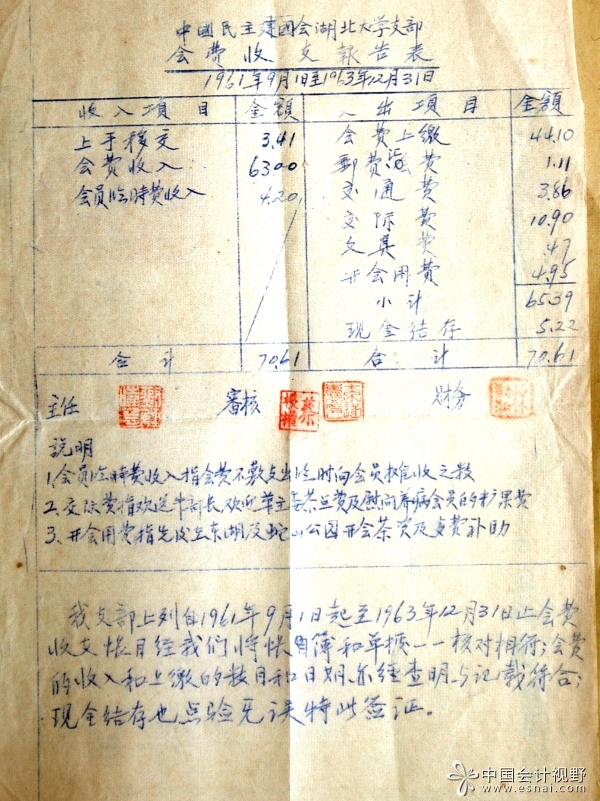 中國民主建國会湖北大学支部
会费收支報告表
1961年9月1日至1963年12月31日
收入項目 金額 入出項目 金額
上手移交 3.41 会费上缴 44.10
会费收入 63.00 郵费 费 1.11
会员临時费收入 4.20 交通费 3.86
交际费 10.90
文具费 .47
开会用费 4.95
小计 65.39
现金结存 5.22
合计 70.61 合计 70.61
主任 審核 财务
説明
1、会员临時费收入指会费不敷支出临时向会员摊收之款
2、交际费指欢送牛部长,欢迎 主 茶点费及慰问养病会员的 果费
3、开会用费指先后在东湖及蛇山公园开会茶资及 费补助
我支部上列自1961年9月1日起至1963年12月31日止会费
收支帐目经我们将帐簿和单据一一核对相符;会费
的收入和上缴的数目和日期亦经查明与记载符合;
现金结存也点验无误特此签证。
中国会计视野
www.esnai.com